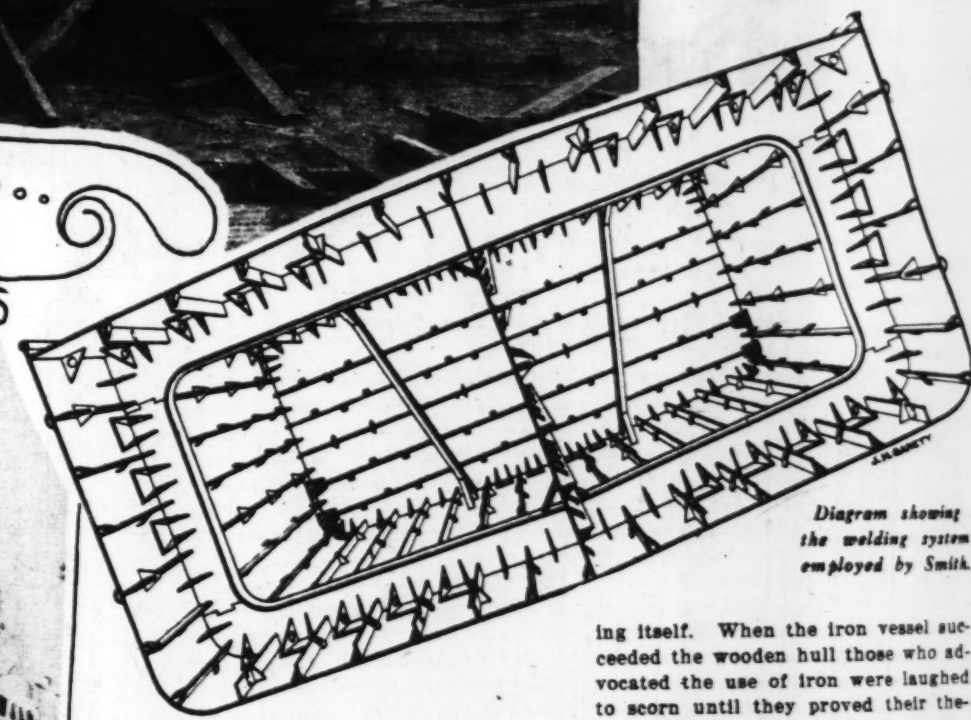 Diagram showing
the welding system
employed by Smith.
ing itself. When the iron vessel suc-
ceeded the wooden hull those who ad-
vocated the use of iron were laughed
to scorn until they proved their the-